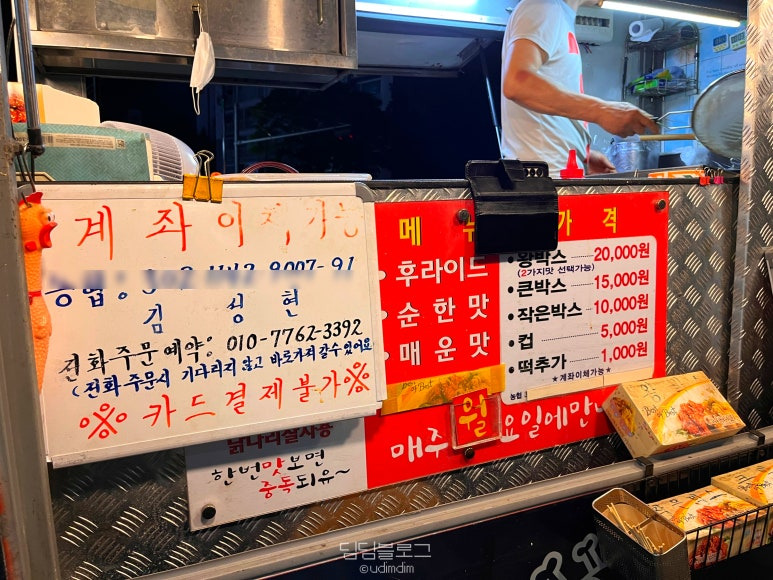 계좌이체가능
농협:
김성현
전화주문예약: 010-7762-3392
(전화주문시 기다리지 않고 바로가져갈수있어요
※카드결제불가※
닭다리살사용
한번맛보면
중독되유~
메뉴
• 후라이드
• 순한맛
• 매운맛
가격
• 왕박스 20,000원
(2가지맛 선택가능)
• 큰박스 15,000원
• 작은박스 10,000원
• 컵 5,000원
• 떡추가 1,000원
★계좌이체가능★
농협
매주 월요일에만나
Best of Best
Best of Best
딥딤블로그
©udimdim